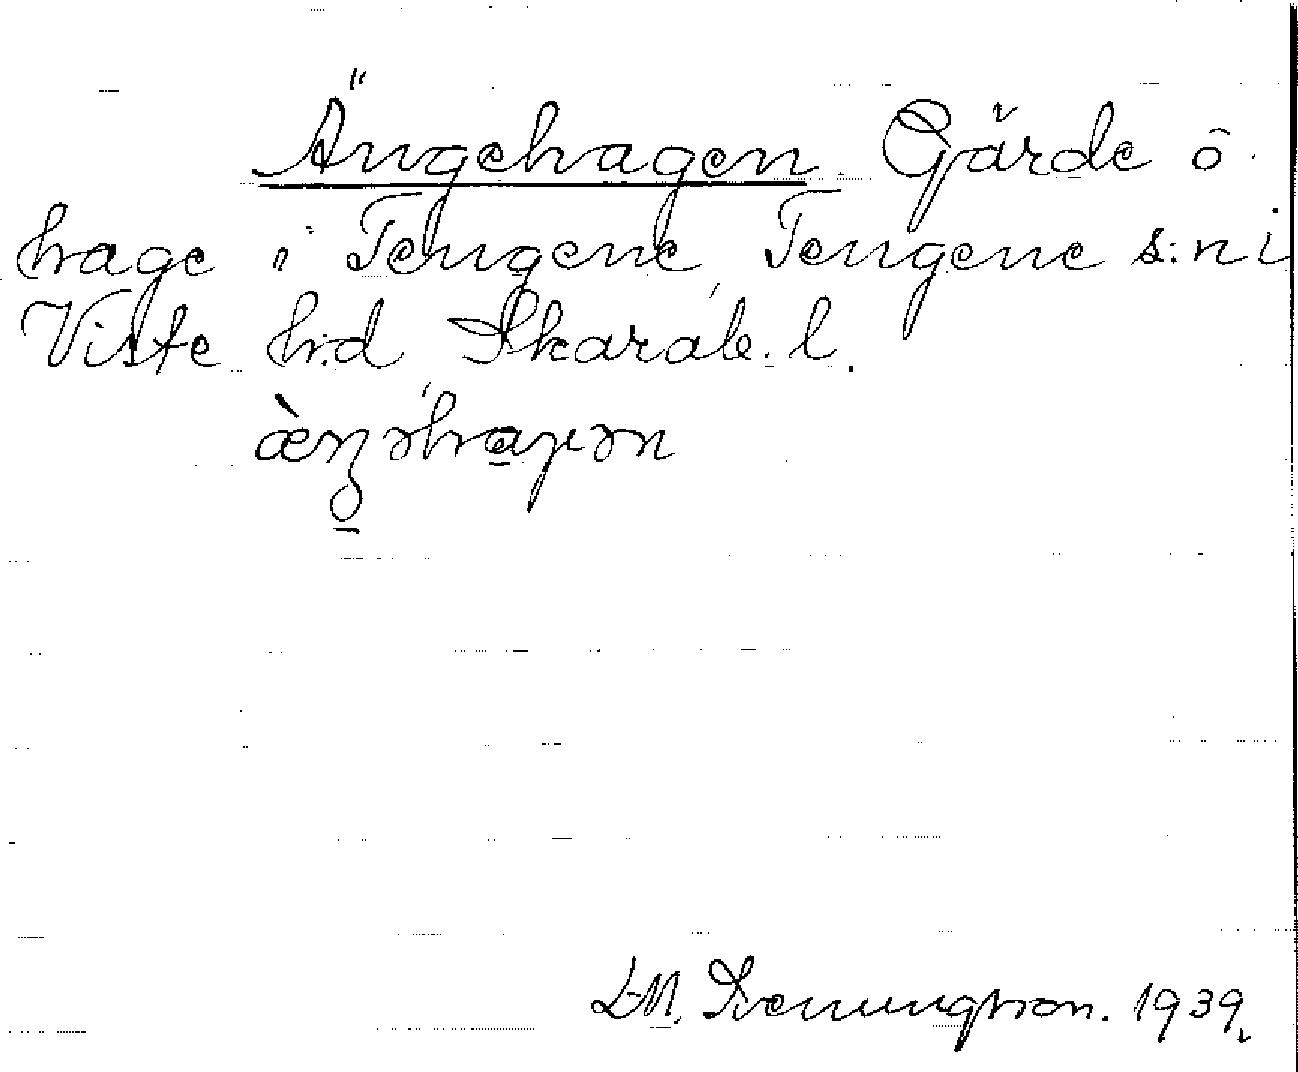 Ängehagen Gärde o
hage i Tengene Tengene s:n i
Viste h:d Skarab. l.
1939.